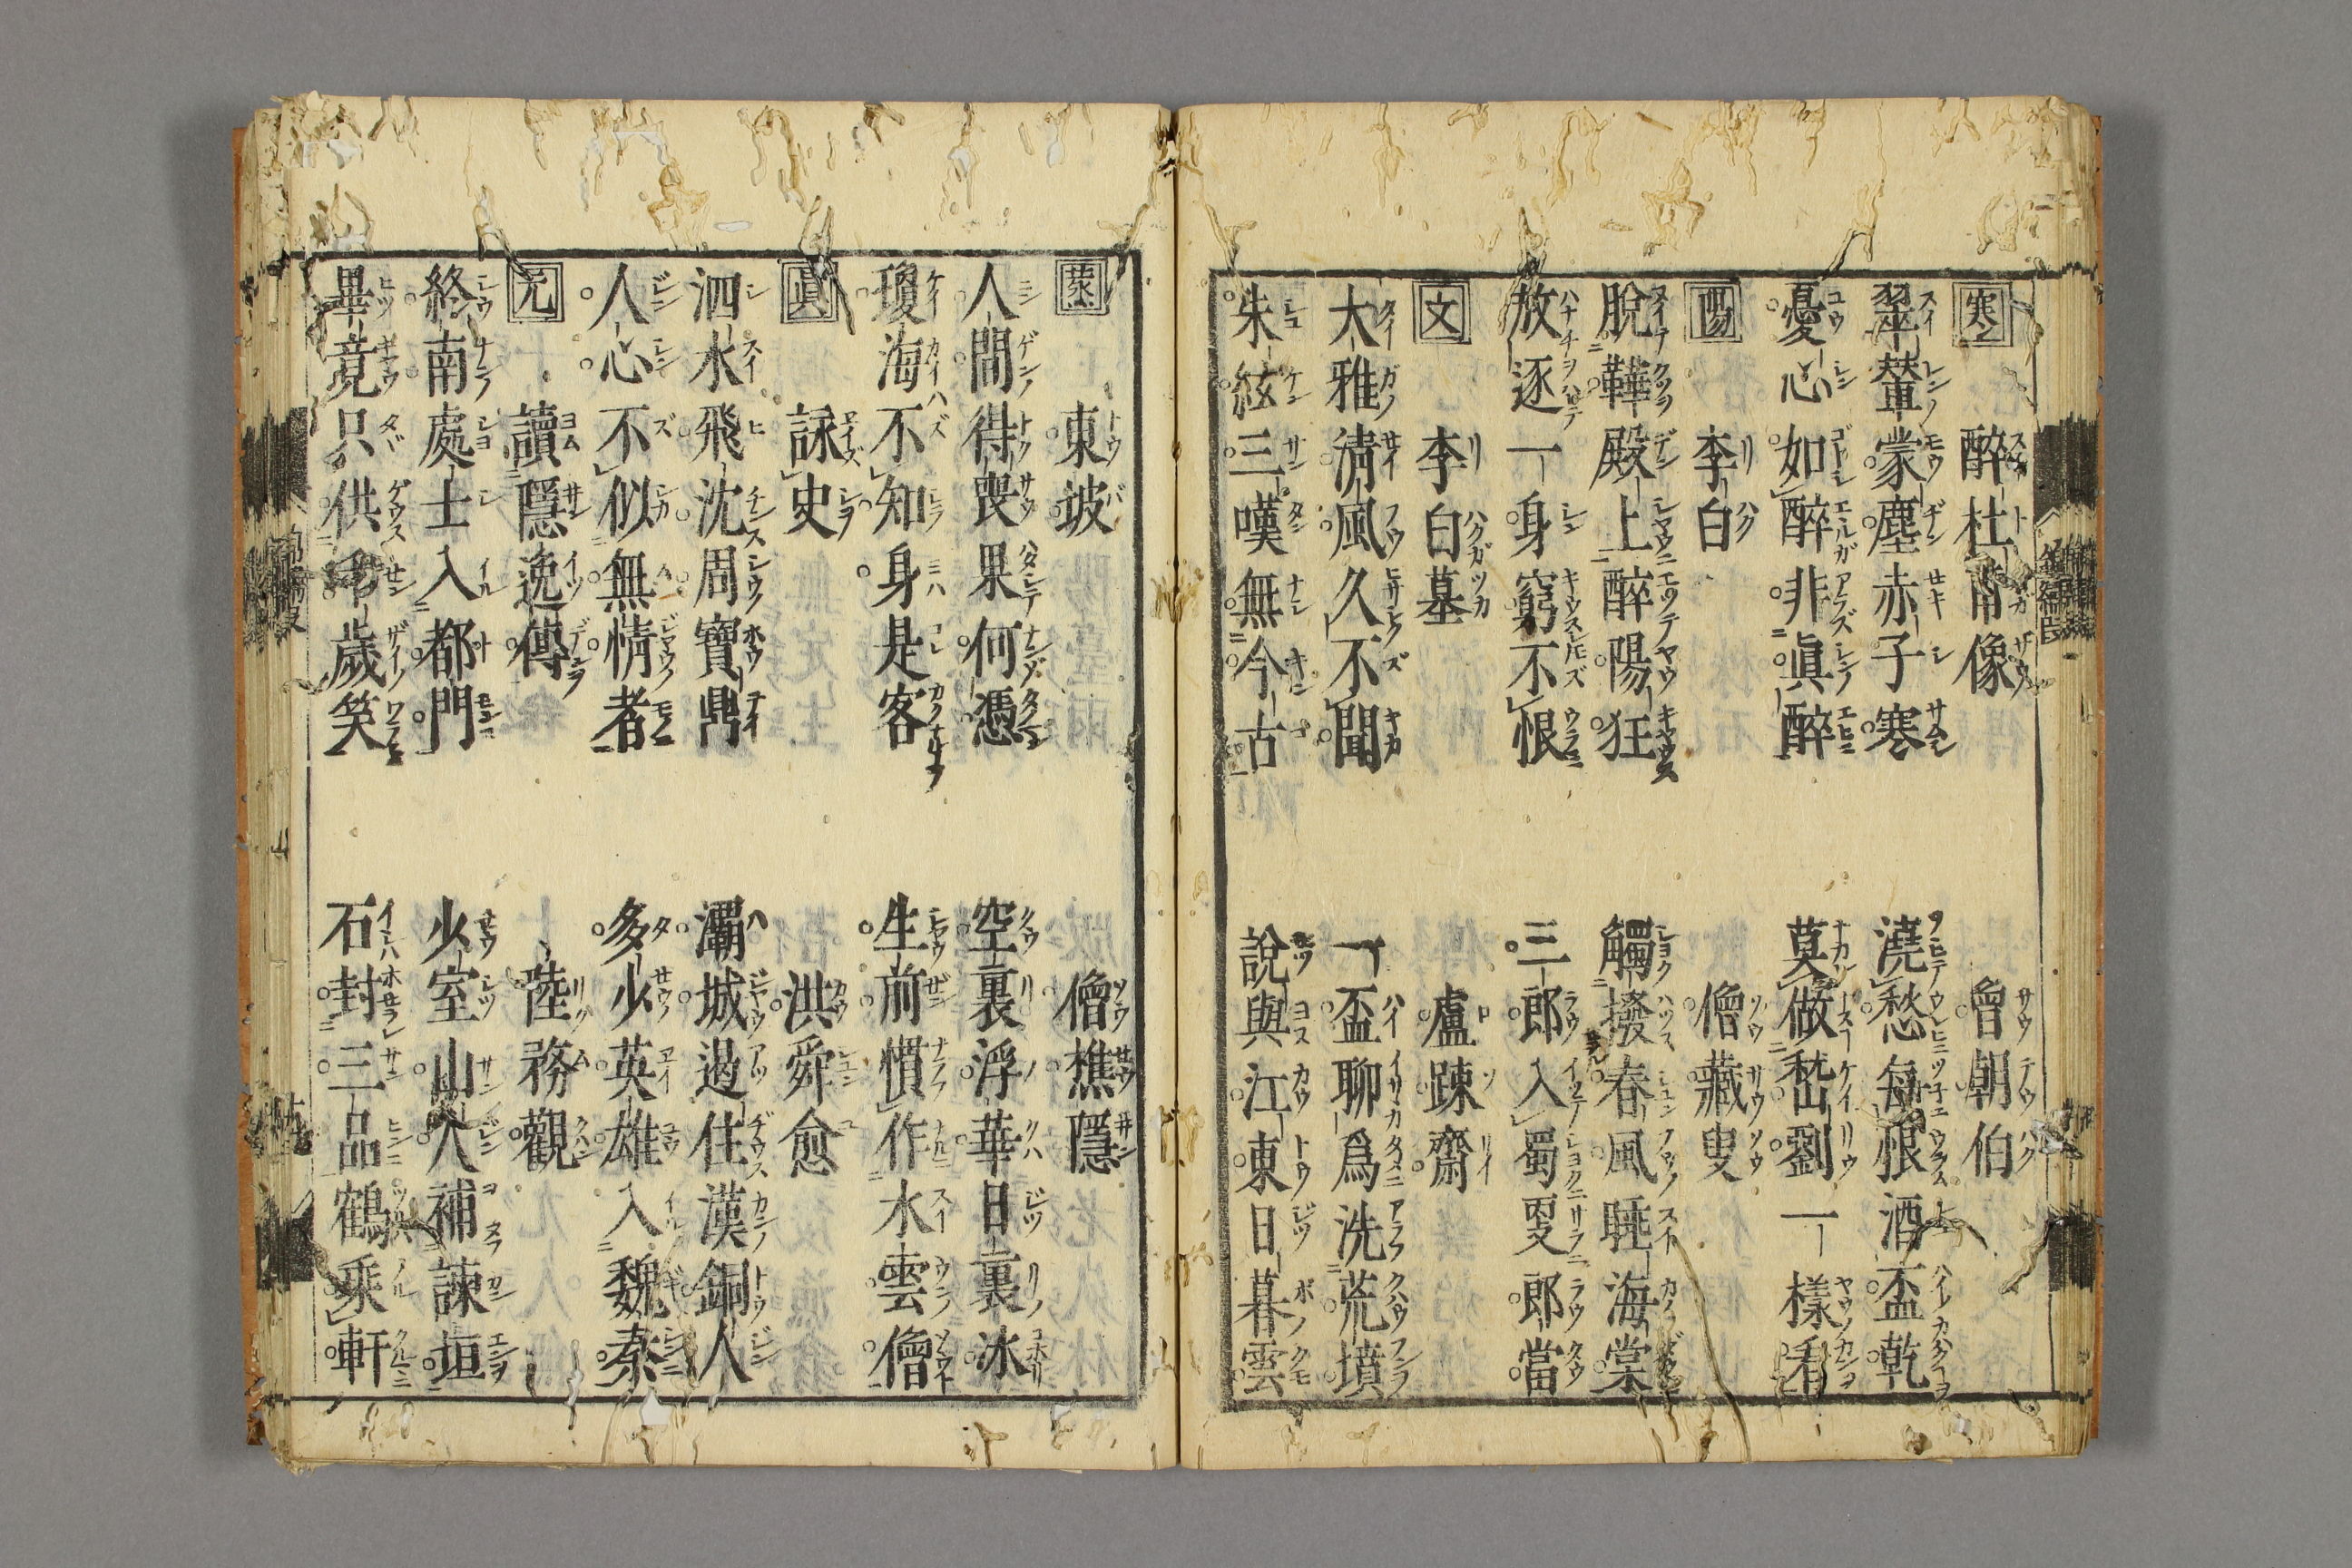 寒 醉杜甫像 曾朝伯
翠輦蒙塵赤子寒 澆愁每恨酒盃乾
憂心如醉非眞醉 莫做嵇劉一樣看
陽 李白 僧藏叟
脫鞾殿上醉陽狂 觸撥春風睡海棠
放逐一身窮不恨 三郎入蜀更郎當
文 李白墓 盧踈齋
大雅淸風久不聞 一盃聊爲洗荒墳
朱絃三嘆無今古 說與江東日暮雲
蒸 東坡 僧樵隱
人間得喪果何憑 空裏浮華日裏冰
瓊海不知身是客 生前慣作水雲僧
眞 詠史 洪舜愈
泗水飛沈周寶鼎 灞城過住漢銅人
人心不似無情者 多少英雄入魏秦
元 讀隱逸傳 陸務觀
終南處士入都門 少室山人補諫垣
畢竟只供千歲笑 石封三品鶴乘軒